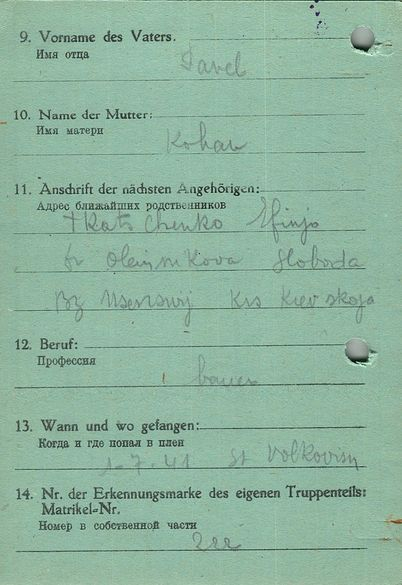 9. Vorname des Vaters.
Имя отца
Pavel
10. Name der Mutter:
Имя матери
Kohan
11. Anschrift der nächsten Angehörigen:
Адрес ближайших родственников
Tkatschenko
Sloboda
Kiev skoja
12. Beruf:
Профессия
bauer
13. Wann und wo gefangen:
Когда и где попал в плен
1-7-41 St Volkovisk
14. Nr. der Erkennungsmarke des eigenen Truppenteils:
Matrikel=Nr.
Номер в собственной части